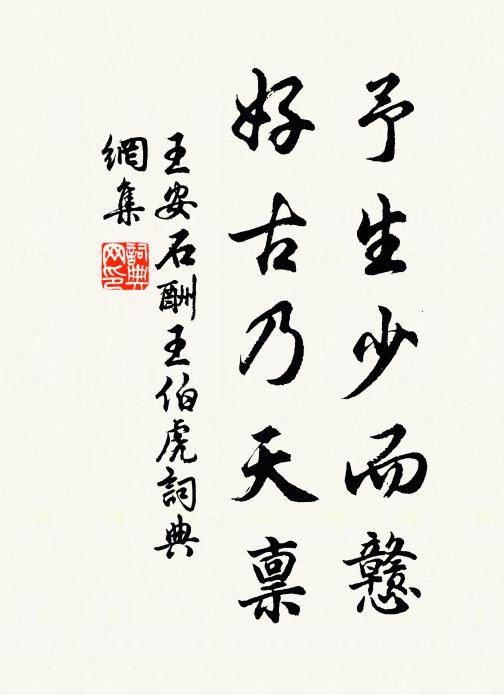 予生少而戆
好古乃天禀
王安石酬王伯虎詞典
網集
詞典
网印